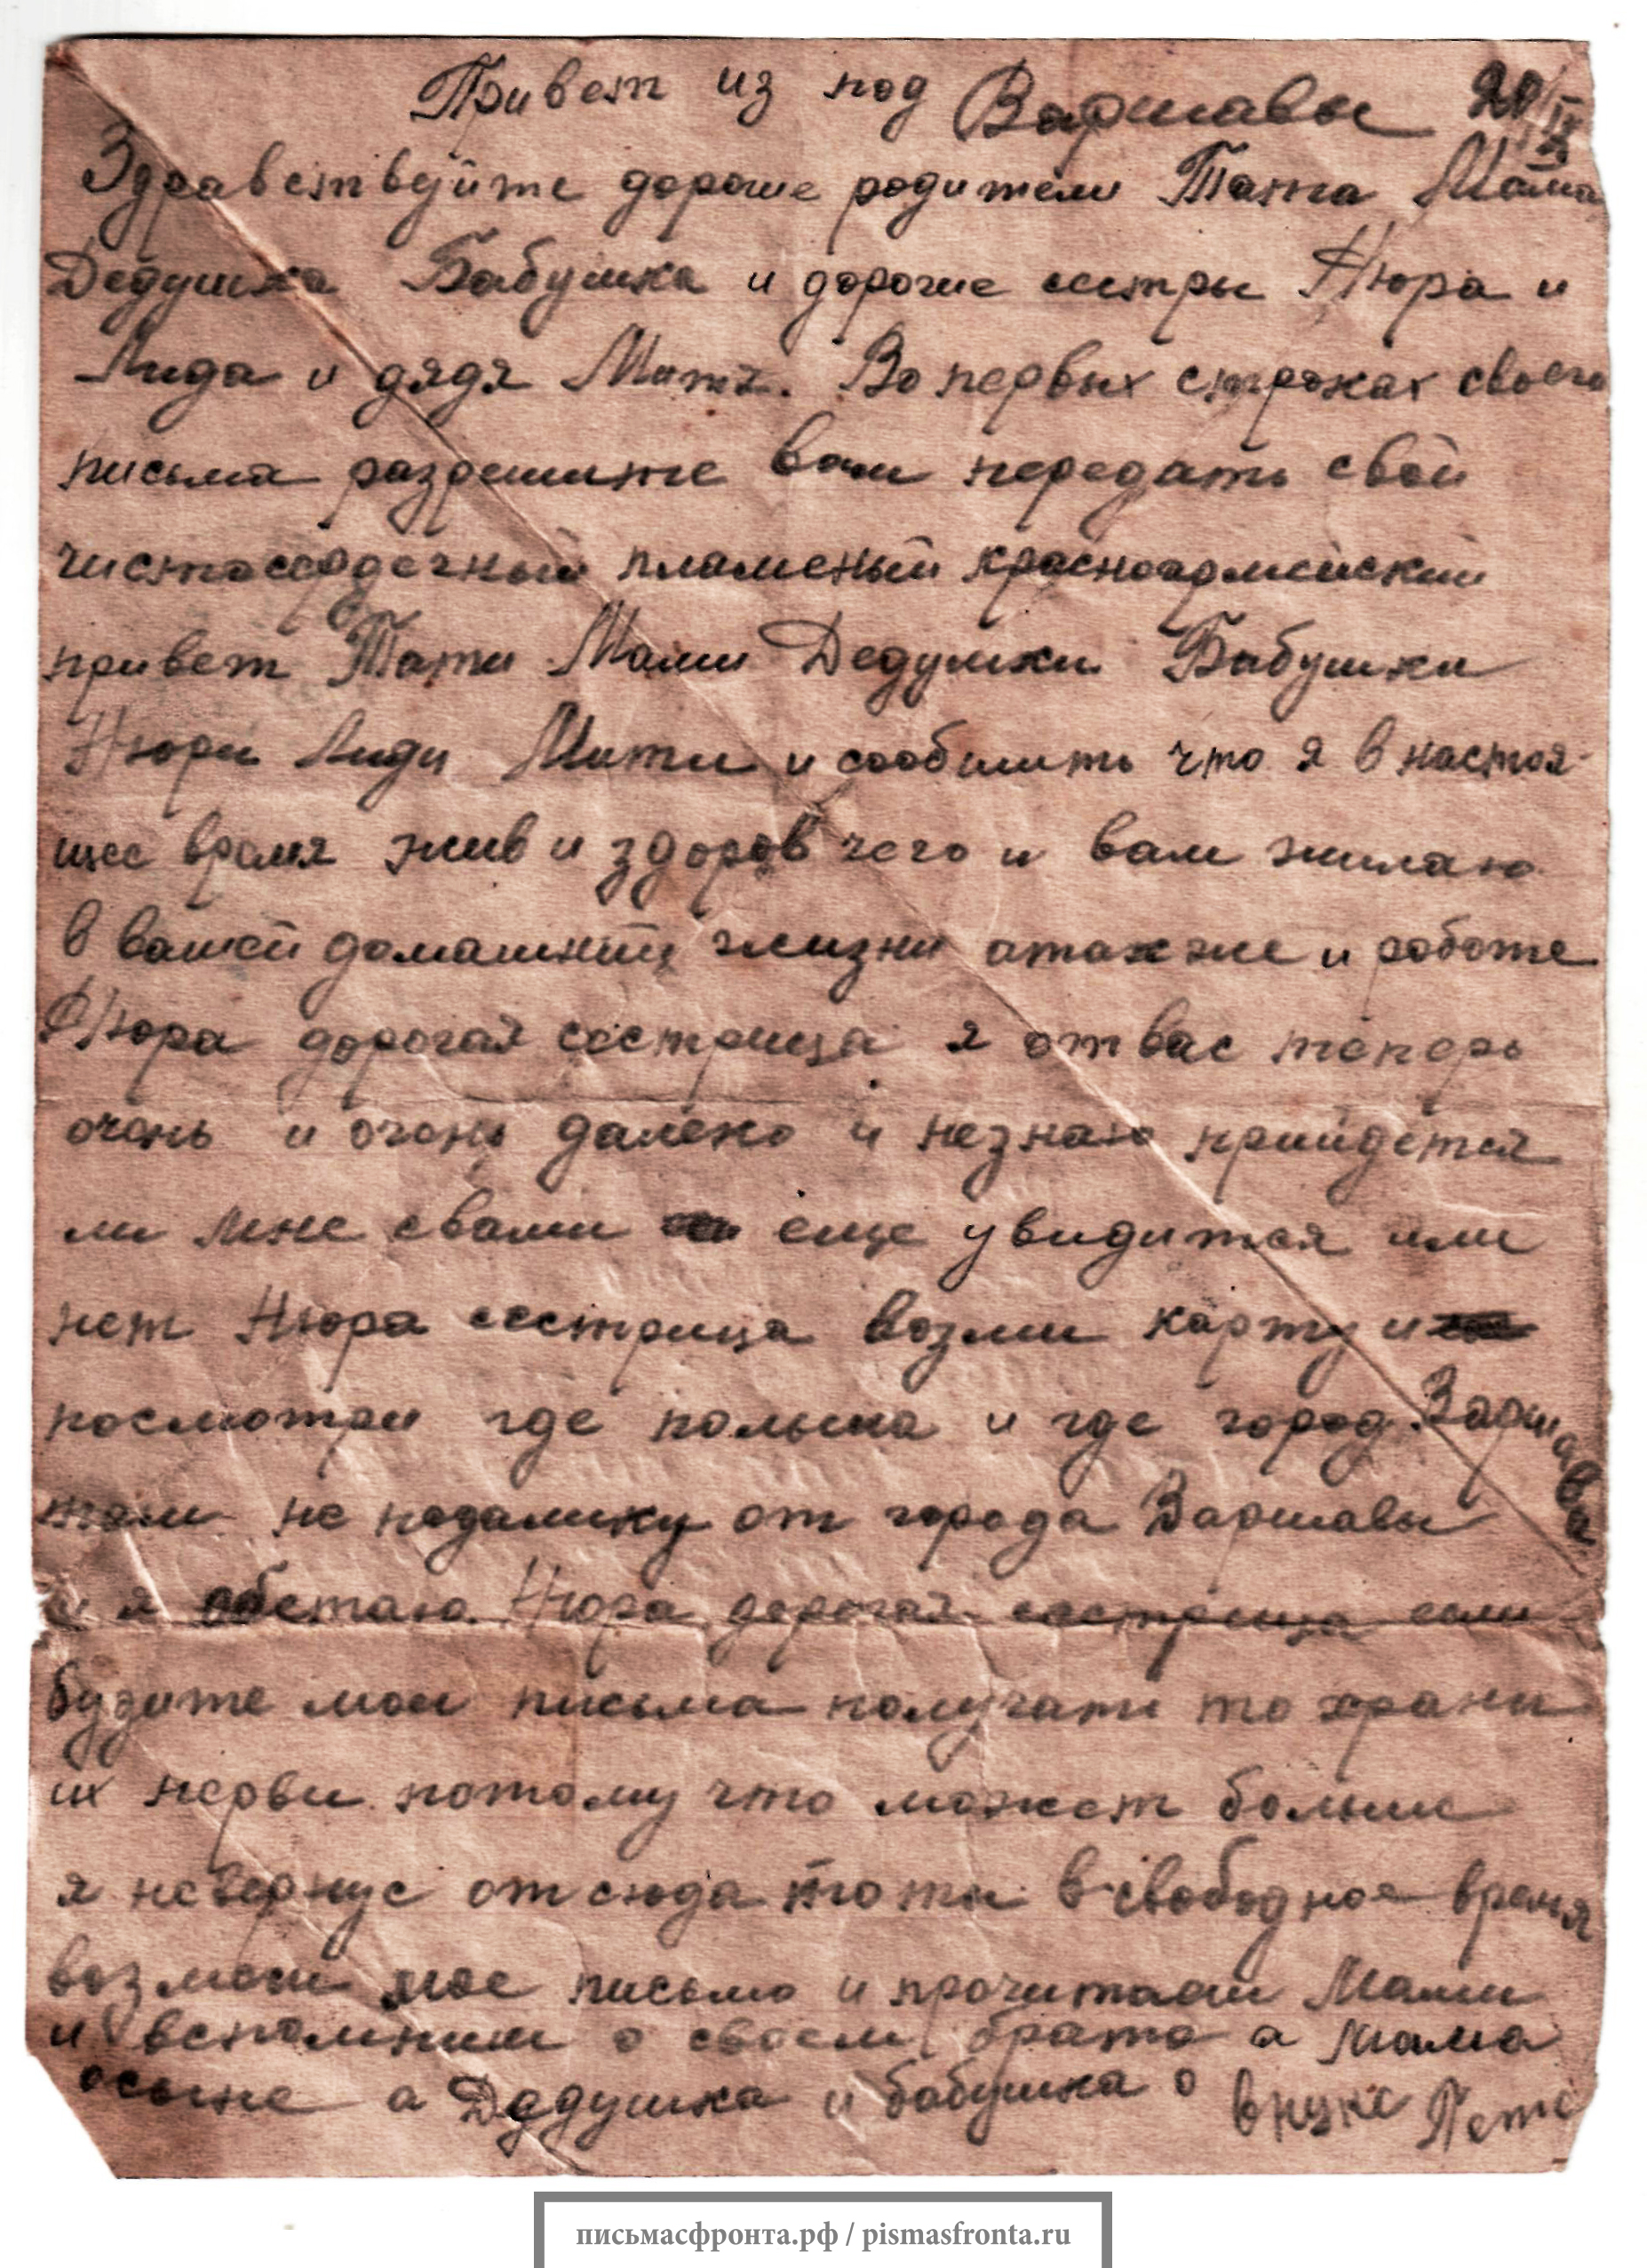 Привет из под Варшавы 20/IX
Здравствуйте дорогие родители Тата Мама
Дедушка Бабушка и дорогие сестры Нюра и
Лида и дядя Митя. Во первых строках своего
письма разрешите вам передать свой
чистосердечный пламеный красноармейский
привет Тати Мами Дедушки Бабушки
Нюри Лиди Мити и сообшить что я в настоя-
щее время жив и здоров чего и вам жилаю
в вашей домашний жизни атакже и работе
Нюра дорогая сестрица я от вас теперь
очень и очень далеко и незнаю прийдется
ли мне свами еще увидится или
нет Нюра сестрица возми карту и
посмотри где польша и где город Варшава
там не подалику от города Варшавы
и я обетаю Нюра дорогая сестрица если
будите мои письма получати то храни
их нерви потому что может больше
я невернус отсюда то ти в свободное время
возмеш мое письмо и прочитаеш Мами
и вспомниш о своем брате а мама
осыне а Дедушка и бабушка о внуке Пете
письмасфронта.рф / pismasfronta.ru